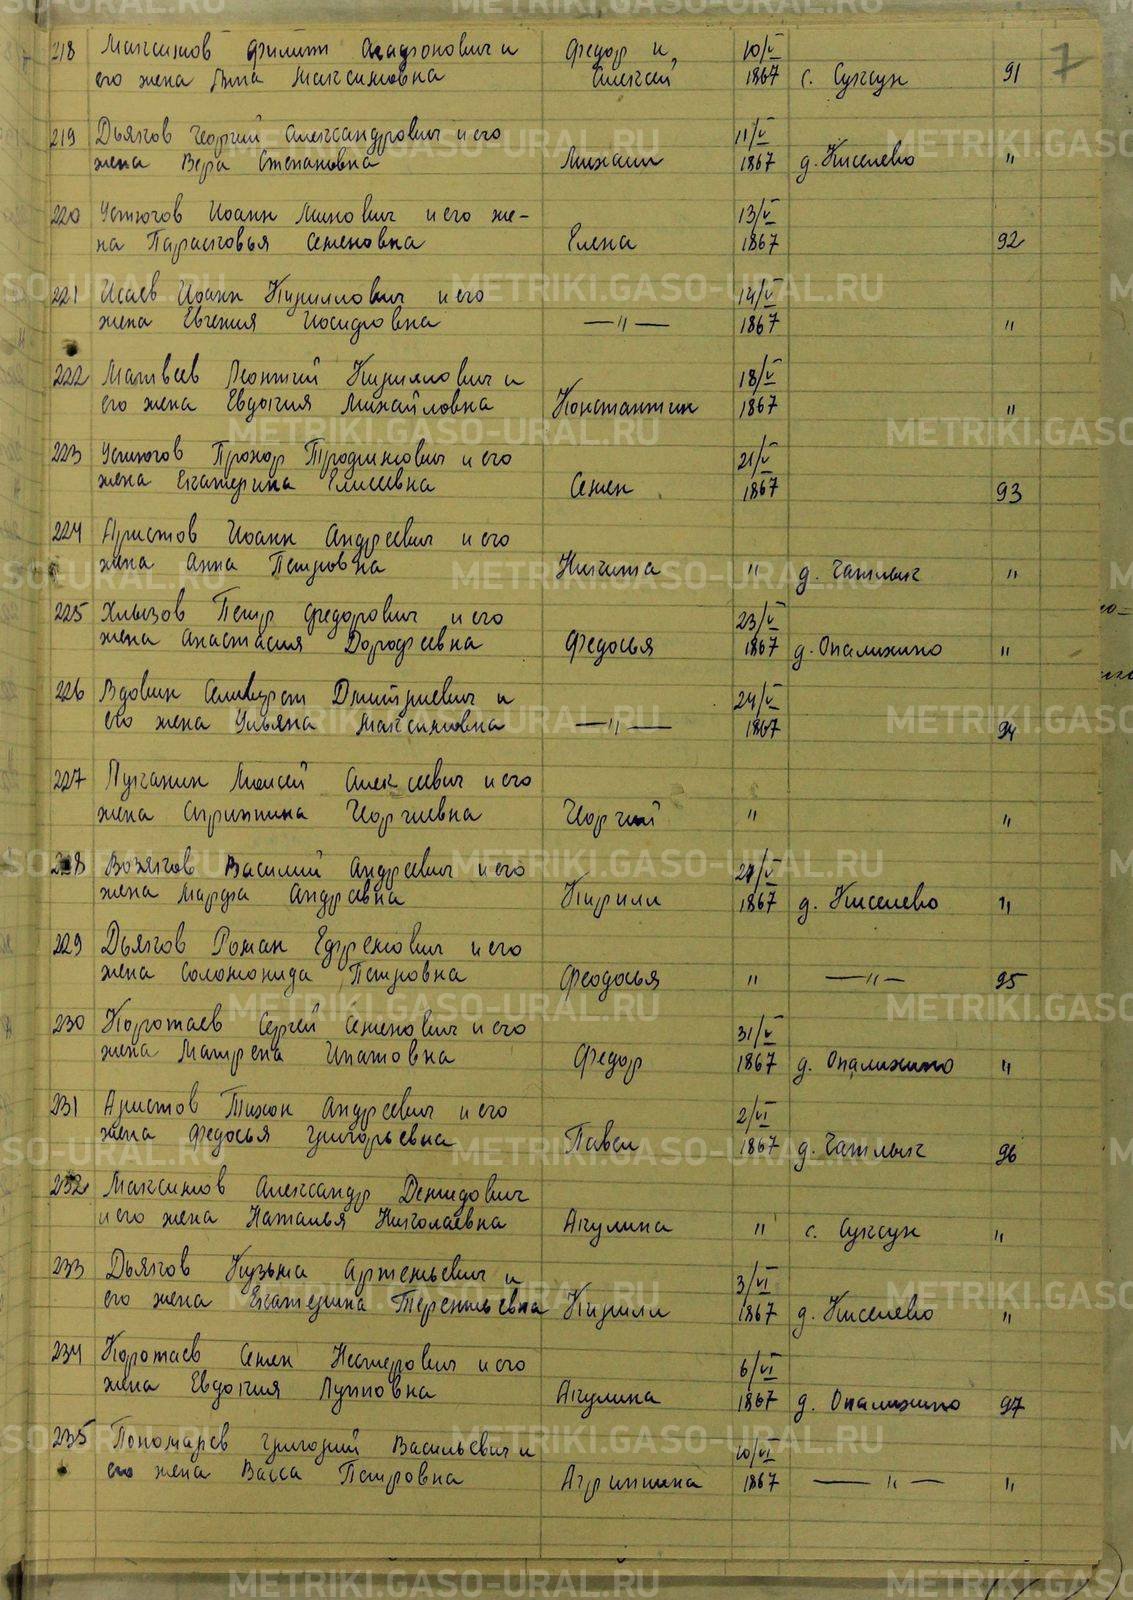 7
218 Максимов Филипп Агафонович и Федор и 10/V
его жена Анна Максимовна Алексей 1867 с. Суксун 91
219 Дьяков Георгий Александрович и его 11/V
жена Вера Степановна Михаил 1867 д. Киселево "
220 Устюгов Иоанн Минович и его же- 13/V
на Парасковья Семеновна Елена 1867 92
221 Исаев Иоанн Кириллович и его 14/V
жена Евгения Иосифовна —"— 1867 "
222 Матвеев Леонтий Кириллович и 18/V
его жена Евдокия Михайловна Константин 1867 "
223 Устюгов Прохор Трофимович и его 21/V
жена Екатерина Елисеевна Семен 1867 93
224 Аристов Иоанн Андреевич и его
жена Анна Петровна Никита " д. Чатлык "
225 Хлызов Петр Федорович и его 23/V
жена Анастасия Дорофеевна Федосья 1867 д. Опалихино "
226 Вдовин Селиверст Дмитриевич и 24/V
его жена Ульяна Максимовна —"— 1867 94
227 Лучанин Моисей Алексеевич и его
жена Агрипина Георгиевна Георгий " "
228 Возяков Василий Андреевич и его 27/V
жена Марфа Андреевна Кирилл 1867 д. Киселево "
229 Дьяков Роман Ефремович и его
жена Соломонида Петровна Феодосья " —"— 95
230 Коротаев Сергей Семенович и его 31/V
жена Матрена Ипатовна Федор 1867 д. Опалихино "
231 Аристов Тихон Андреевич и его 2/VI
жена Федосья Григорьевна Павел 1867 д. Чатлык 96
232 Максимов Александр Демидович
и его жена Наталья Николаевна Акулина " с. Суксун "
233 Дьяков Кузьма Артемьевич и 3/VI
его жена Екатерина Терентьевна Кирилл 1867 д. Киселево "
234 Коротаев Семен Нестерович и его 6/VI
жена Евдокия Лупповна Акулина 1867 д. Опалихино 97
235 Пономарев Григорий Васильевич и 10/VI
его жена Васса Петровна Агрипина 1867 —"— "
METRIKI.GASO-URAL.RU